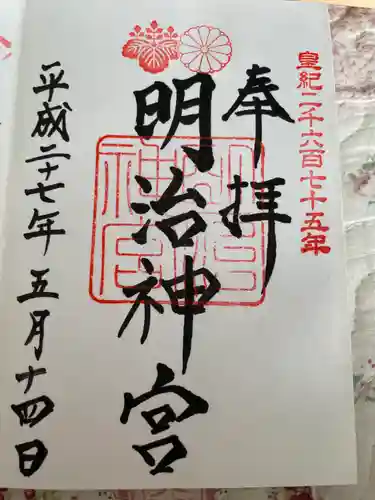 皇紀二千六百七十五年
奉拝
明治神宮
平成二十七年五月十四日